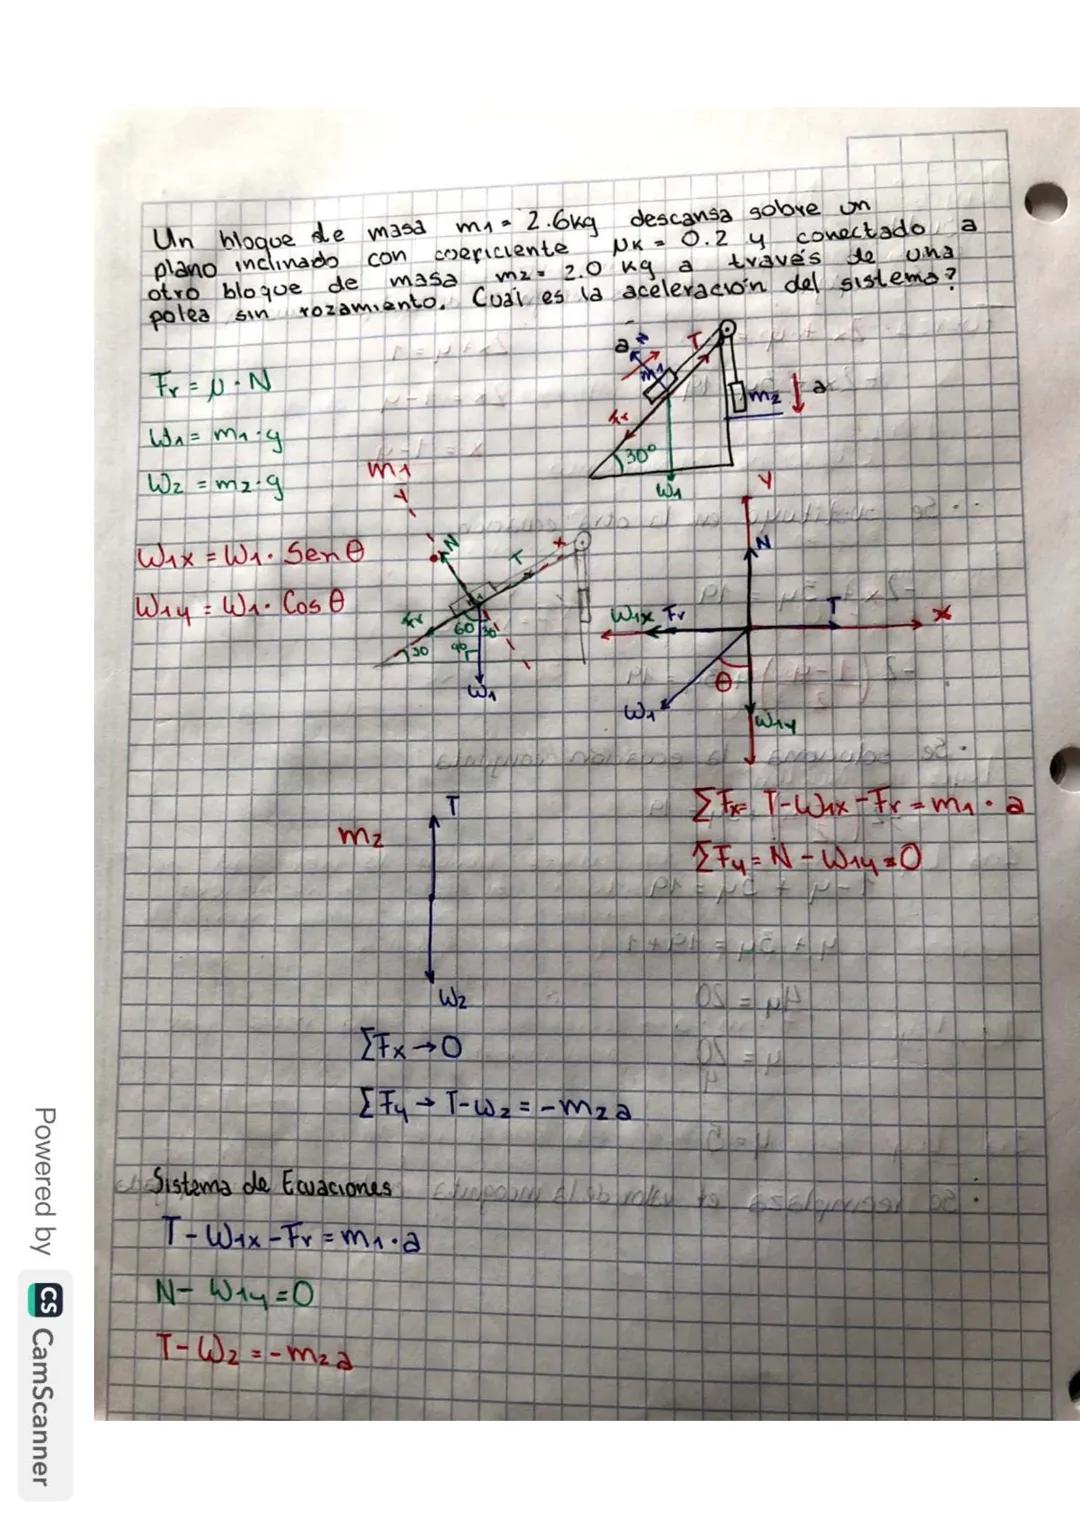 Un bloque de masa m1 = 2.6kg descansa sobre un
plano inclinado con coeficiente μk = 0.2 y conectado a
otro bloque de masa m2 = 2.0 kg a través de una
polea sin rozamiento. Cual es la aceleración del sistema?
Fr = μ · N
W1 = m1 · g
W2 = m2 · g
W1x = W1 · Sen θ
W1y = W1 · Cos θ
a N T
m1
m2 a
Fr
30°
W1
m1
Y
N T x
Fr 60 30
30 90
W1
Y
N
W1x Fr T x
θ
W1
W1y
ΣFx= T-W1x-Fr = m1 · a
ΣFy = N - W1y = 0
m2
T
W2
ΣFx → 0
ΣFy → T-W2 = -m2a
Sistema de Ecuaciones
T - W1x - Fr = m1 · a
N - W1y = 0
T - W2 = -m2a
Powered by CS CamScanner